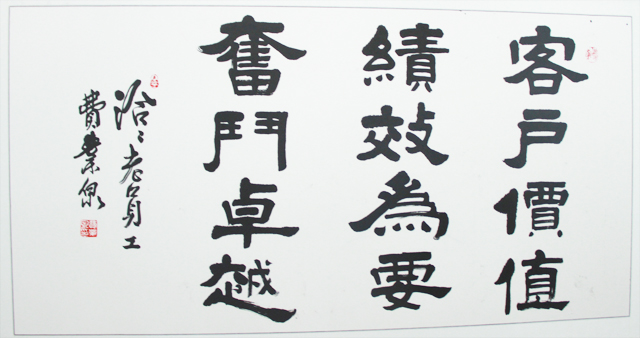 客戶價值
績效為要
奮鬥卓越
洽洽老員工
費業泉